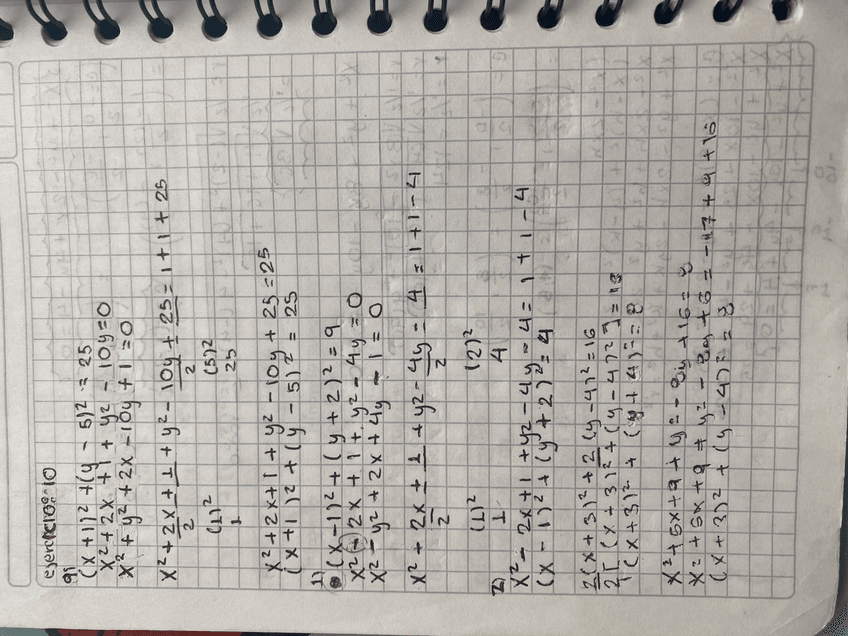 ejercicios 10
9)
(x+1)² + (y - 5)² = 25
x² + 2x + 1 + y² - 10y = 0
x² + y² + 2x - 10y + 1 = 0
x² + 2x + 1 + y² - 10y + 25 = 1 + 1 + 25
2 2
(1)² (5)²
1 25
x² + 2x + 1 + y² - 10y + 25 = 25
(x + 1)² + (y - 5)² = 25
1)
(x - 1)² + (y + 2)² = 9
x² - 2x + 1 + y² - 4y = 0
x² - y² + 2x + 4y - 1 = 0
x² + 2x + 1 + y² - 4y - 4 = 1 + 1 - 4
2 2
(1)² (2)²
1 4
2)
x² - 2x + 1 + y² - 4y - 4 = 1 + 1 - 4
(x - 1)² + (y + 2)² = 4
2(x + 3)² + 2(y - 4)² = 16
2[(x + 3)² + (y - 4)²] = 16
(x + 3)² + (y + 4)² = 8
x² + 6x + 9 + y² - 8y + 16 = 8
x² + 6x + 9 + y² - 8y + 6 = -17 + 9 + 16
(x + 3)² + (y - 4)² = 8